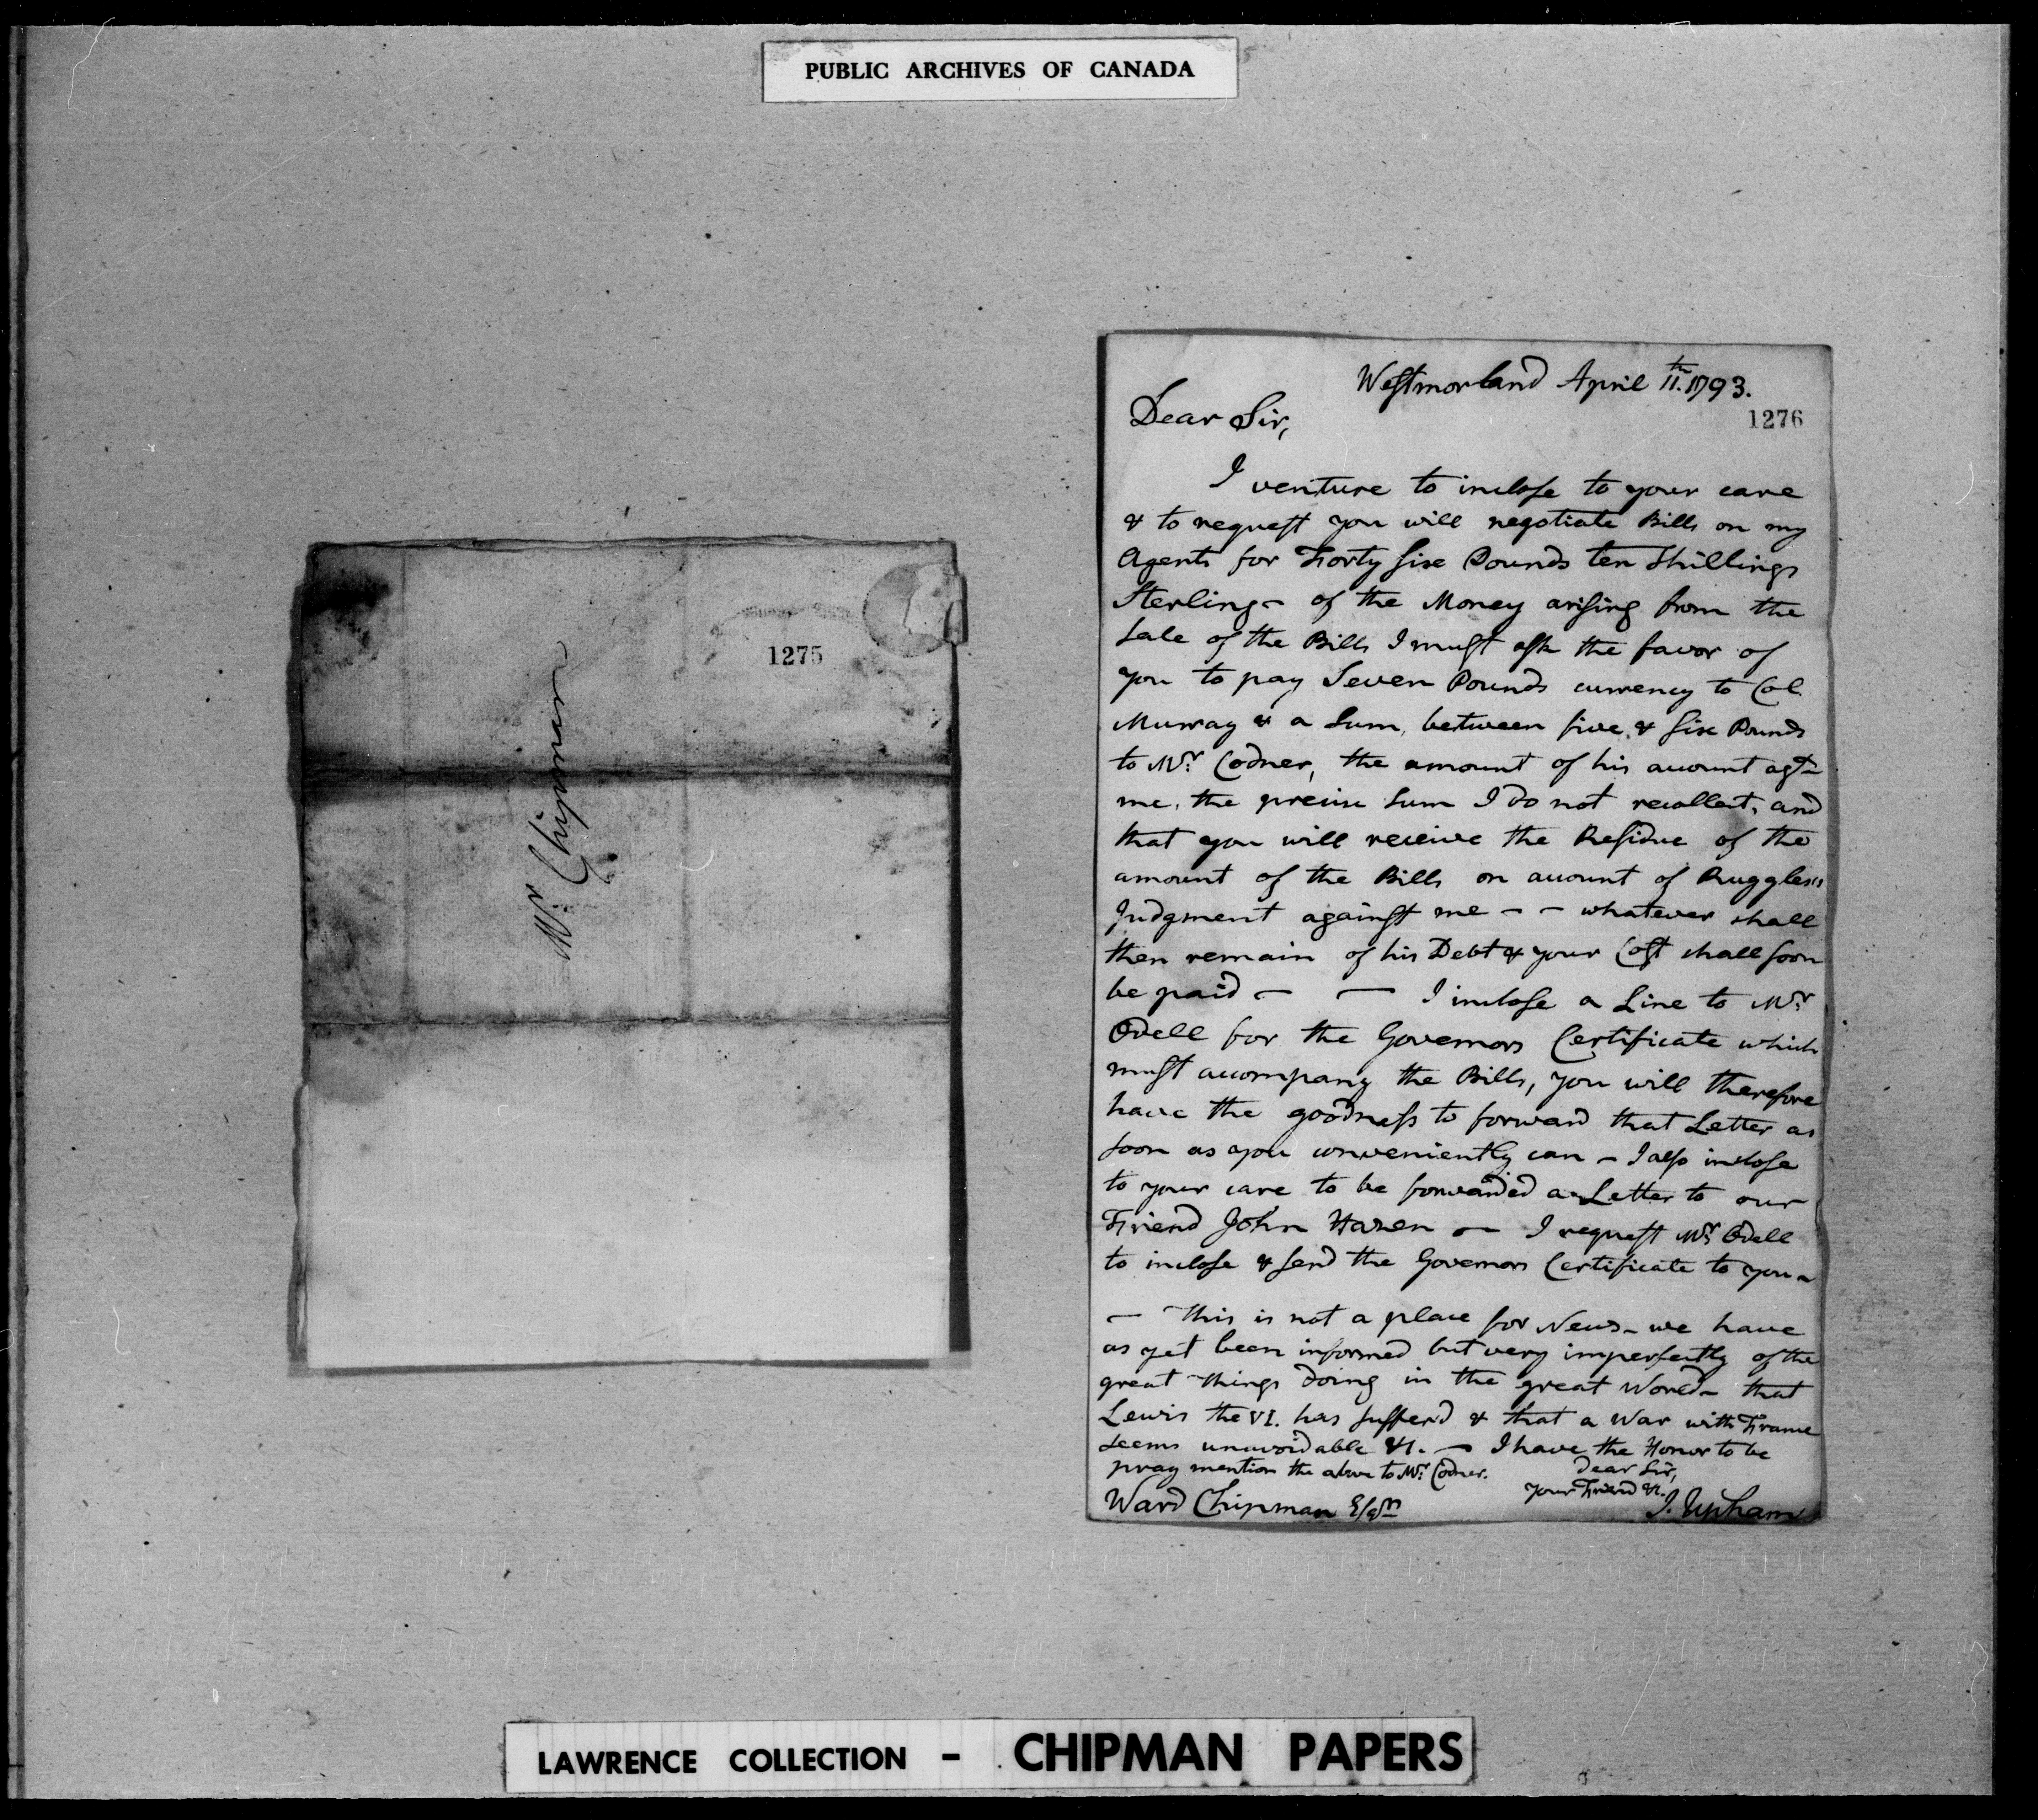 PUBLIC ARCHIVES OF CANADA
1275
Mr. Chipman
Westmorland April 11.th 1793.
1276
Dear Sir,
I venture to inclose to your care
& to request you will negotiate Bills on my
Agents for Forty six Pounds ten Shillings
Sterling - of the Money arising from the
Sale of the Bills I must ask the favor of
you to pay Seven Pounds currency to Col.
Murray & a Sum, between five & six Pounds
to Mr. Codner, the amount of his account agt.
me, the precise sum I do not recollect, and
that you will receive the Residue of the
amount of the Bills on account of Ruggles's
Judgment against me - - whatever shall
then remain of his Debt & your Cost shall soon
be paid - - I inclose a Line to Mr.
Odell for the Governors Certificate which
must accompany the Bills, you will therefore
have the goodness to forward that Letter as
soon as you conveniently can - I also inclose
to your care to be forwarded a Letter to our
Friend John Hazen - I request Mr. Odell
to inclose & send the Governors Certificate to you -
- This is not a place for News - we have
as yet been informed but very imperfectly of the
great things doing in the great World - that
Lewis the VI. has sufferd & that a War with France
seems unavoidable &c. - I have the Honor to be
pray mention the above to Mr. Codner.
Dear Sir,
your Friend &c.
Ward Chipman Esqr.
J. Upham
LAWRENCE COLLECTION - CHIPMAN PAPERS